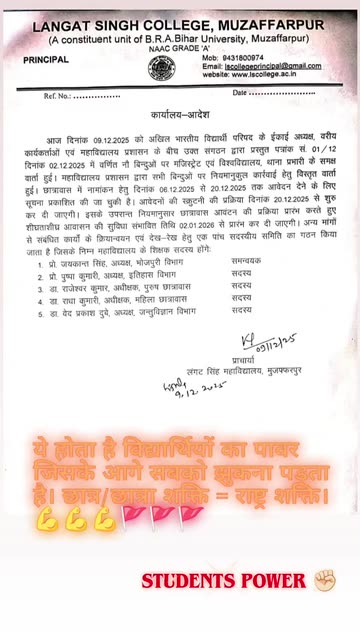 LANGAT SINGH COLLEGE, MUZAFFARPUR
(A constituent unit of B.R.A.Bihar University, Muzaffarpur)
NAAC GRADE 'A'
PRINCIPAL
Mob: 9431600974
Email: lscollegeprincipal@gmail.com
website: www.lscollege.ac.in
Ref. No.:
Date
कार्यालय–आदेश
आज दिनांक 09.12.2025 को अखिल भारतीय विद्यार्थी परिषद के ईकाई अध्यक्ष, वरीय
कार्यकर्ताओं एवं महाविद्यालय प्रशासन के बीच उक्त संगठन द्वारा प्रस्तुत पत्रांक सं. 01/12
दिनांक 02.12.2025 में वर्णित नौ बिन्दुओं पर मजिस्ट्रेट एवं विश्वविद्यालय, थाना प्रभारी के समक्ष
वार्ता हुई। महाविद्यालय प्रशासन द्वारा सभी बिन्दुओं पर नियमानुकूल कार्रवाई हेतु विस्तृत वार्ता
हुई। छात्रावास में नामांकन हेतु दिनांक 06.12.2025 से 20.12.2025 तक आवेदन देने के लिए
सूचना प्रकाशित की जा चुकी है। आवेदनों की स्क्रुटनी की प्रक्रिया दिनांक 20.12.2025 से शुरु
कर दी जाएगी। इसके उपरान्त नियमानुसार छात्रावास आवंटन की प्रक्रिया प्रारंभ करते हुए
शीघ्रताशीघ्र आवासन की सुविधा संभावित तिथि 02.01.2026 से प्रारंभ कर दी जाएगी। अन्य मांगों
से संबंधित कार्यो के क्रियान्वयन एवं देख–रेख हेतु एक पांच सदस्यीय समिति का गठन किया
जाता है जिसके निम्न महाविद्यालय के शिक्षक सदस्य होंगेः
1. प्रो. जयकान्त सिंह, अध्यक्ष, भोजपुरी विभाग समन्वयक
2. प्रो. पुष्पा कुमारी, अध्यक्ष, इतिहास विभाग सदस्य
3. डा. राजेश्वर कुमार, अधीक्षक, पुरुष छात्रावास सदस्य
4. डा. राधा कुमारी, अधीक्षक, महिला छात्रावास सदस्य
5. डा. वेद प्रकाश दुवे, अध्यक्ष, जन्तुविज्ञान विभाग सदस्य
09/12/25
प्राचार्या
लंगट सिंह महाविद्यालय, मुजफ्फरपुर
9.12.2025
ये होता है विद्यार्थियों का पावर
जिसके आगे सबको झुकना पड़ता
है। छात्र/छात्रा शक्ति = राष्ट्र शक्ति।
STUDENTS POWER